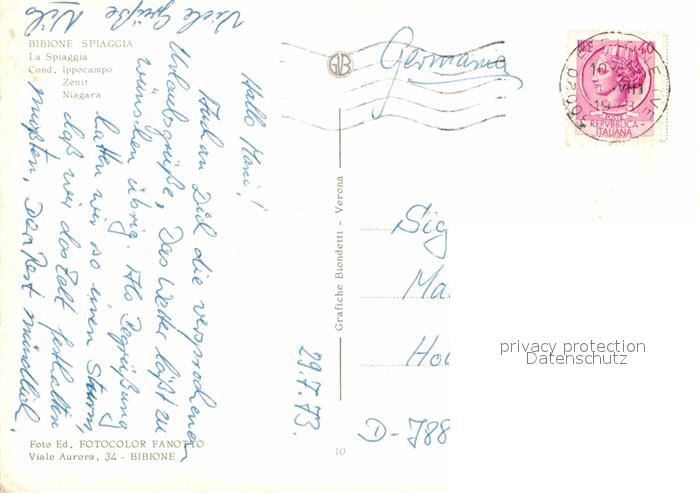 BIBIONE SPIAGGIA
La Spiaggia
Cond. Ippocampo
Zenit
Niagara
Hallo Mani!
Auch an Dich die versprochenen
Urlaubsgrüße. Das Wetter läßt zu
wünschen übrig. Als Begrüßung
hatten wir so einen Sturm,
daß wir das Zelt festhalten
mußten. Den Rest mündlich.
Viele Grüße
29.7.73.
Foto Ed. FOTOCOLOR FANOTTO
Viale Aurora, 34 - BIBIONE
10
Grafiche Biondetti - Verona
GB
Germania
LIRE 40
REPUBBLICA
ITALIANA
30020
10
VIII
Sig
Ma
Ho
D-788
privacy protection
Datenschutz